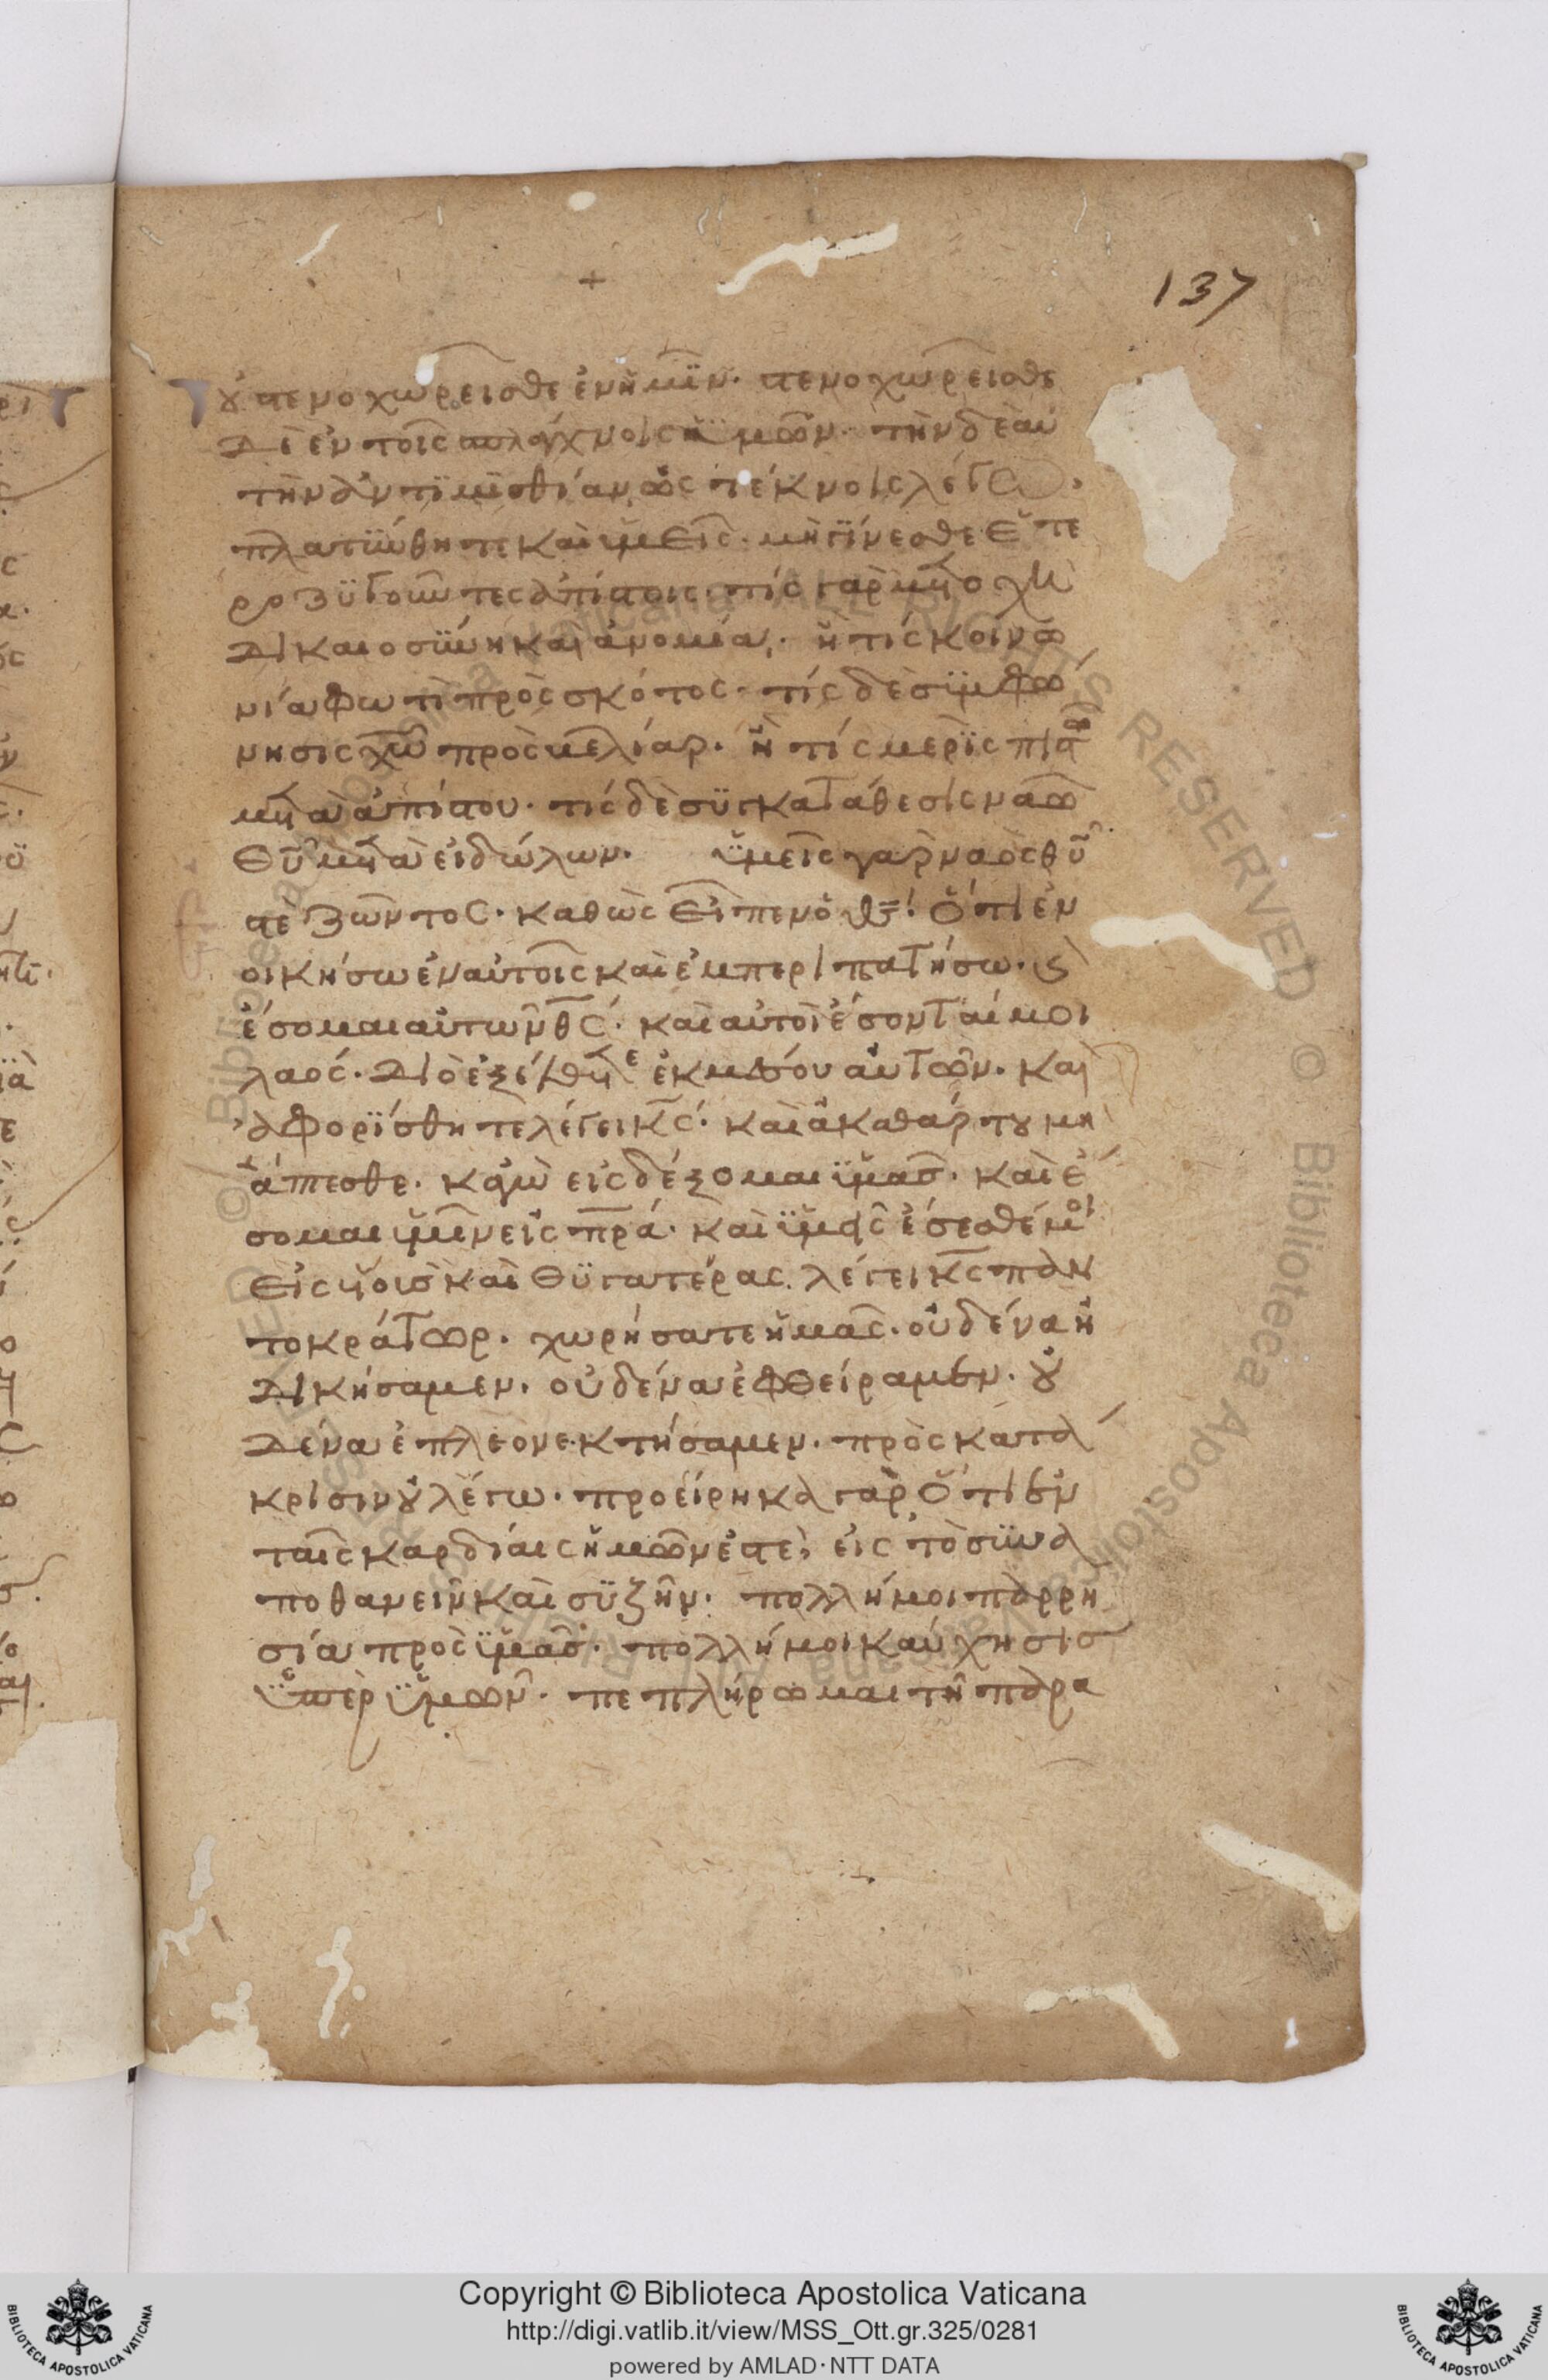 137
οὐ στενοχωρεῖσθε ἐν ἡμῖν· στενοχωρεῖσθε
δὲ ἐν τοῖς σπλάγχνοις ὑμῶν· τὴν δὲ αὐ
τὴν ἀντιμισθίαν ὡς τέκνοις λέγω·
πλατύνθητε καὶ ὑμεῖς· μὴ γίνεσθε ἑτε
ροζυγοῦντες ἀπίστοις· τίς γὰρ μετοχὴ
δικαιοσύνη καὶ ἀνομία· ἢ τίς κοινω
νία φωτὶ πρὸς σκότος· τίς δὲ συμφώ
νησις χῶ πρὸς βελίαρ· ἢ τίς μερὶς πιστῶ
μετὰ ἀπίστου· τίς δὲ συγκατάθεσις ναῶ
θῦ μετὰ εἰδώλων· ὑμεῖς γὰρ ναὸς θῦ
ἐστὲ ζῶντος· καθὼς εἶπεν ὁ θς· ὅτι ἐν
οικήσω ἐν αὐτοῖς καὶ ἐμπεριπατήσω· καὶ
ἔσομαι αὐτῶν θς· καὶ αὐτοὶ ἔσονταί μοι
λαός· διὸ ἐξέλθετε ἐκ μέσου αὐτῶν· καὶ
ἀφορίσθητε λέγει κς· καὶ ἀκαθάρτου μὴ
ἅπτεσθε· κἀγὼ εἰσδέξομαι ὑμᾶς· καὶ ἔ
σομαι ὑμῖν εἰς πρα· καὶ ὑμεῖς ἔσεσθέ μοι
εἰς υἱοὺς καὶ θυγατέρας λέγει κς παν
τοκράτωρ· χωρήσατε ἡμᾶς· οὐδένα ἠ
δικήσαμεν· οὐδένα ἐφθείραμεν· οὐ
δένα ἐπλεονεκτήσαμεν· πρὸς κατά
κρισιν οὐ λέγω· προείρηκα γὰρ ὅτι ἐν
ταῖς καρδίαις ἡμῶν ἐστε· εἰς τὸ συνα
ποθανεῖν καὶ συζῆν· πολλή μοι παρρη
σία πρὸς ὑμᾶς· πολλή μοι καύχησις
ὑπὲρ ὑμῶν· πεπλήρωμαι τῆ παρα
Copyright © Biblioteca Apostolica Vaticana
http://digi.vatlib.it/view/MSS_Ott.gr.325/0281
powered by AMLAD·NTT DATA